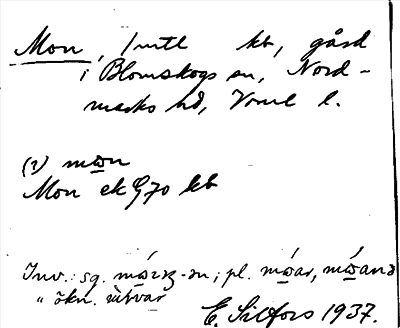 Mon, 1 mtl kb, gård
i Blomskogs sn, Nord-
marks hd, Vrml l.
(1) mꞷn
Mon ek G70 kb
Inv.: sg. -ən; pl. mꞷ́ar, mꞷ́ana
" ökn.
E. Sillfors 1937.